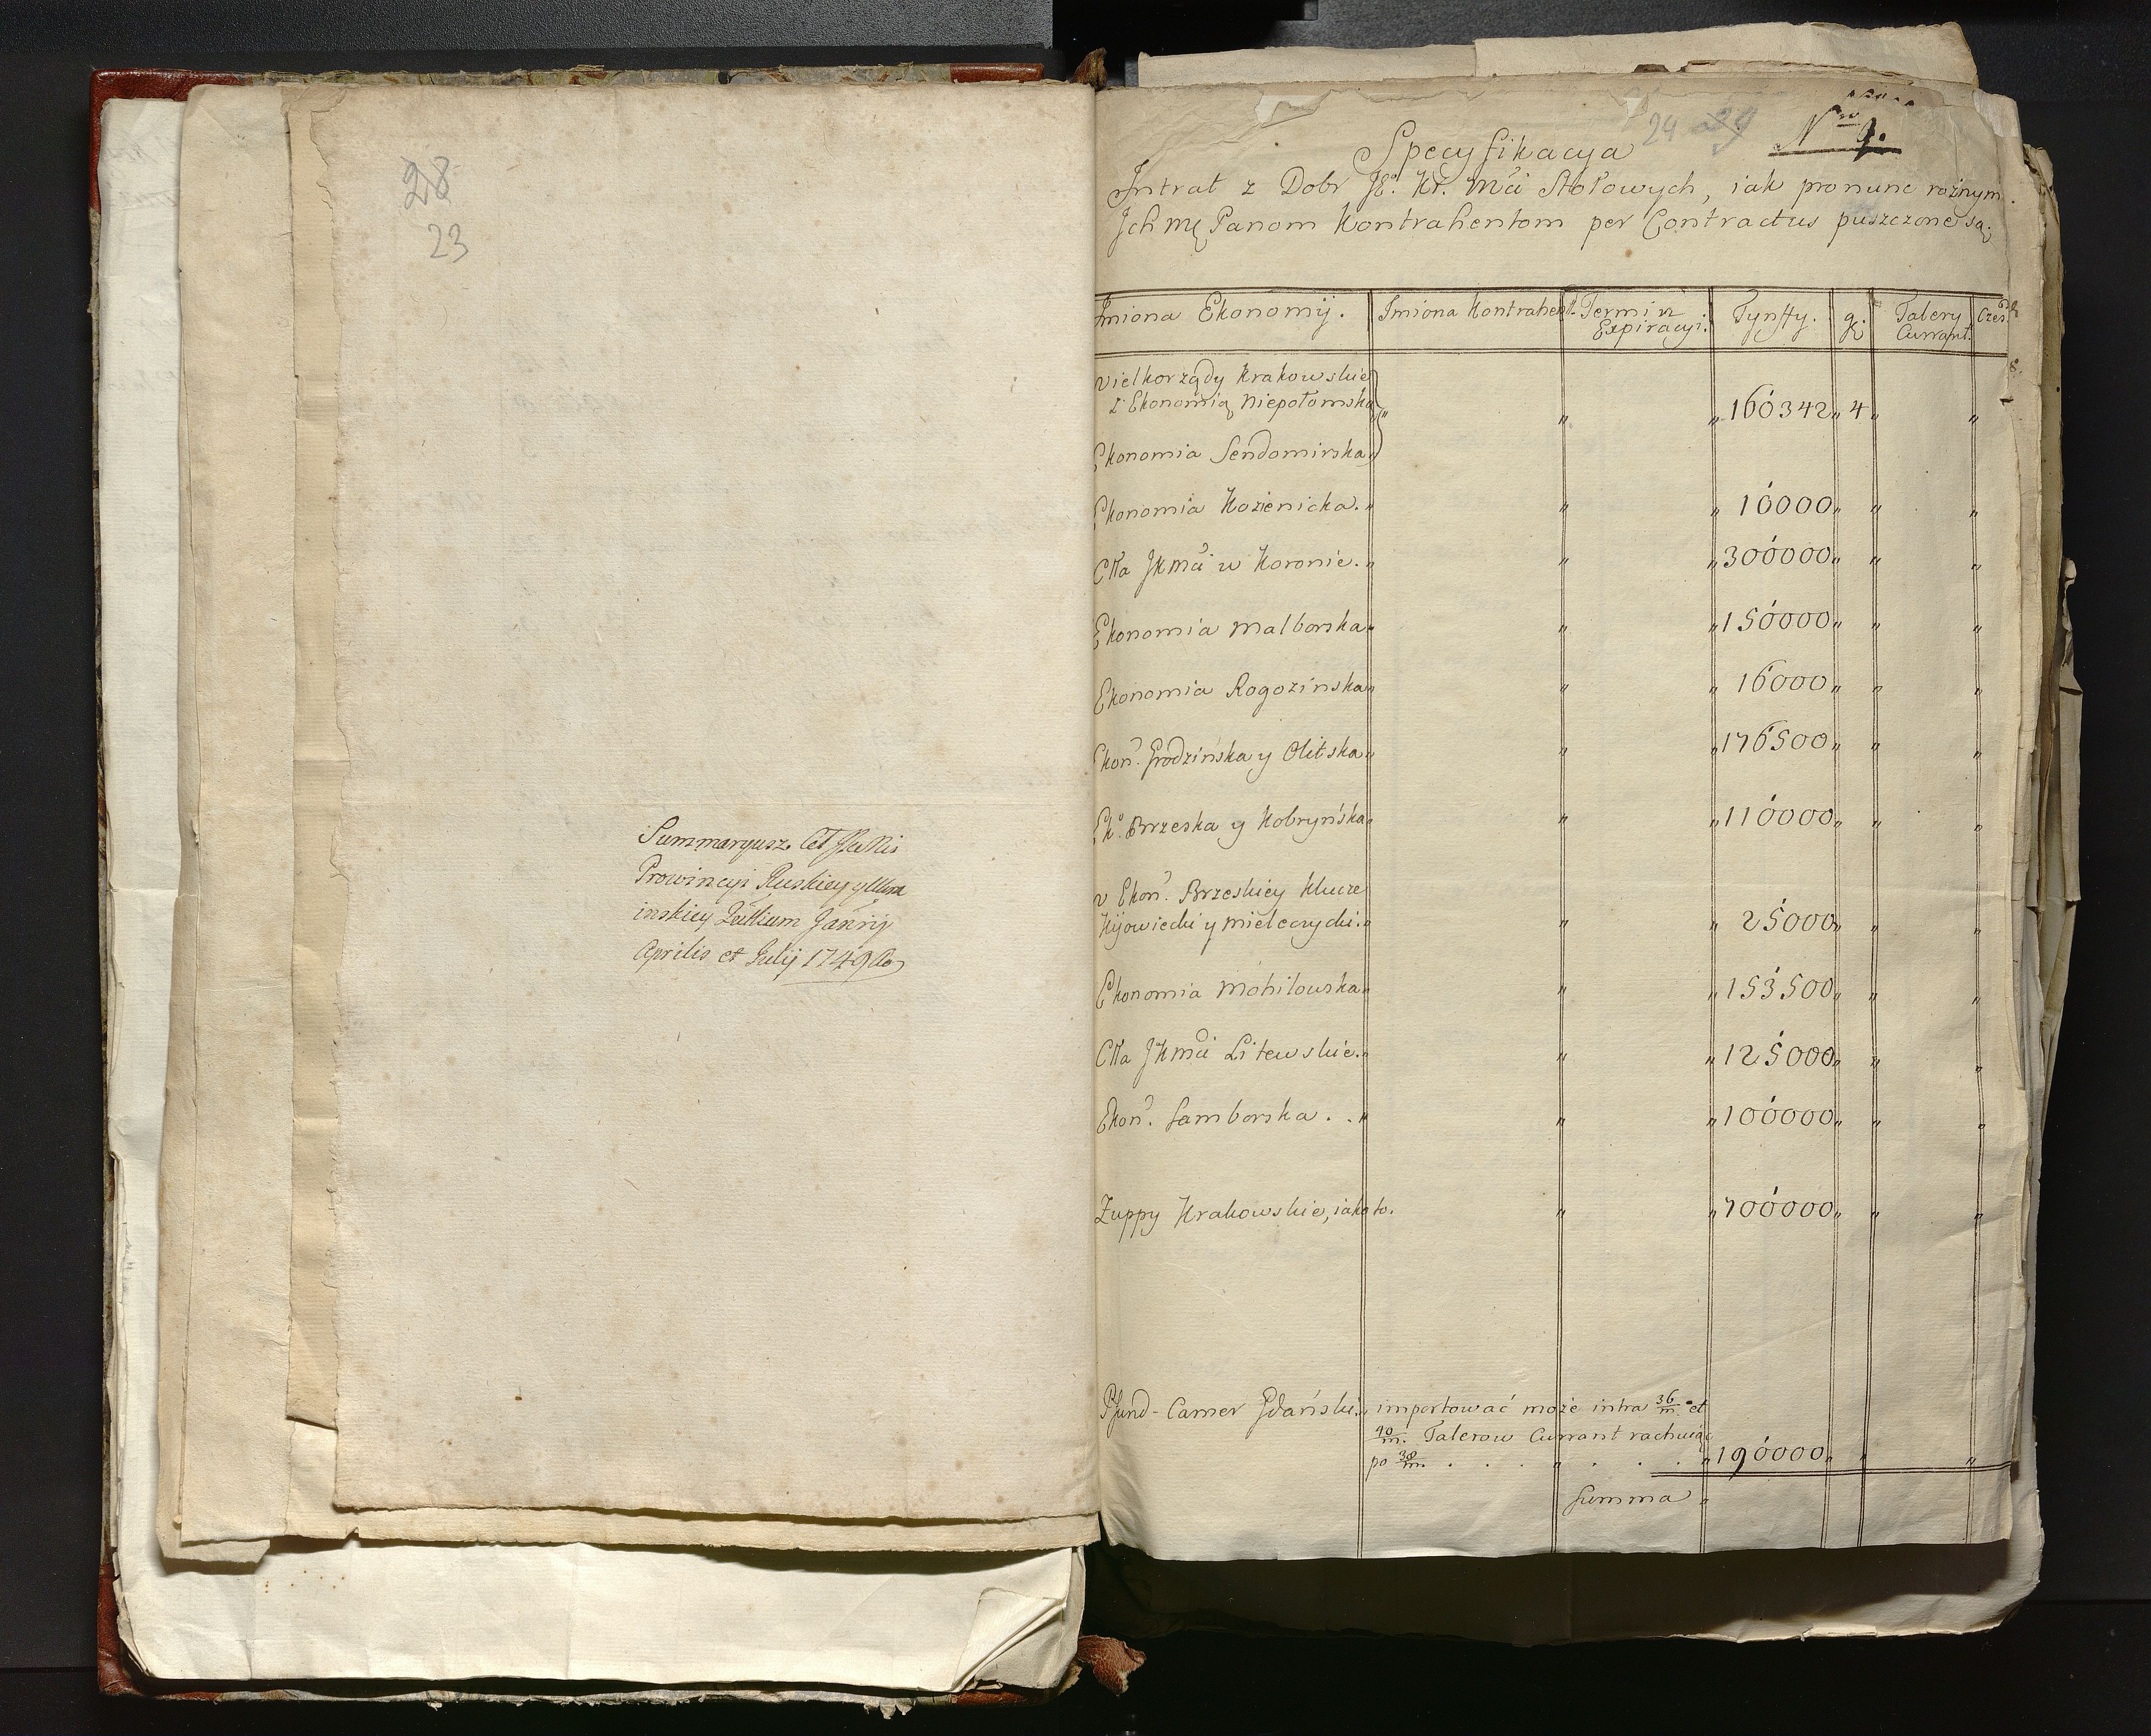 28
23
Summaryusz Ceł JKMci
Prowincyi Ruskiey y Ukra
inskiey
Aprilis et Julij 1749
24 29 Nro 9.
Specyfikacya
Intrat z Dobr JE. Kr. Mci Stołowych, iak pro nunc rożnym
Ich mę Panom Kontrahentom per Contractus puszczone są.
Imiona Ekonomij. Imiona Kontrahent. Termin Expiracyi. Tynffy. gr. Talery Currant. Czer.
Wielkorządy Krakowskie
z Ekonomią Niepołomską „ „ „ 160342 „ 4 „ „
Ekonomia Sendomirska
Ekonomia Kozienicka. „ „ „ 10000 „ „ „
Cła JKMci w Koronie. „ „ „ 300000 „ „ „
Ekonomia Malborska „ „ „ 150000 „ „ „
Ekonomia Rogozinska „ „ „ 16000 „ „ „
Ekon. Grodzińska y Olitska „ „ „ 176500 „ „ „
Ek. Brzeska y Kobryńska „ „ „ 110000 „ „ „
w Ekon. Brzeskiey Klucze
Kijowiecki y Mielczycki. „ „ „ 25000 „ „ „
Ekonomia Mohilowska „ „ „ 153500 „ „ „
Cła JKMci Litewskie. „ „ „ 125000 „ „ „
Ekon. Samborska . . „ „ „ 100000 „ „ „
Zuppy Krakowskie, iako to. „ „ 700000 „ „ „
Pfund-Camer Gdański, importować może intra 36/m. et
40/m. Talerow Currant rachuiąc
po 38/m. . . . „ . . . „ 190000 „ „ „
Summa „